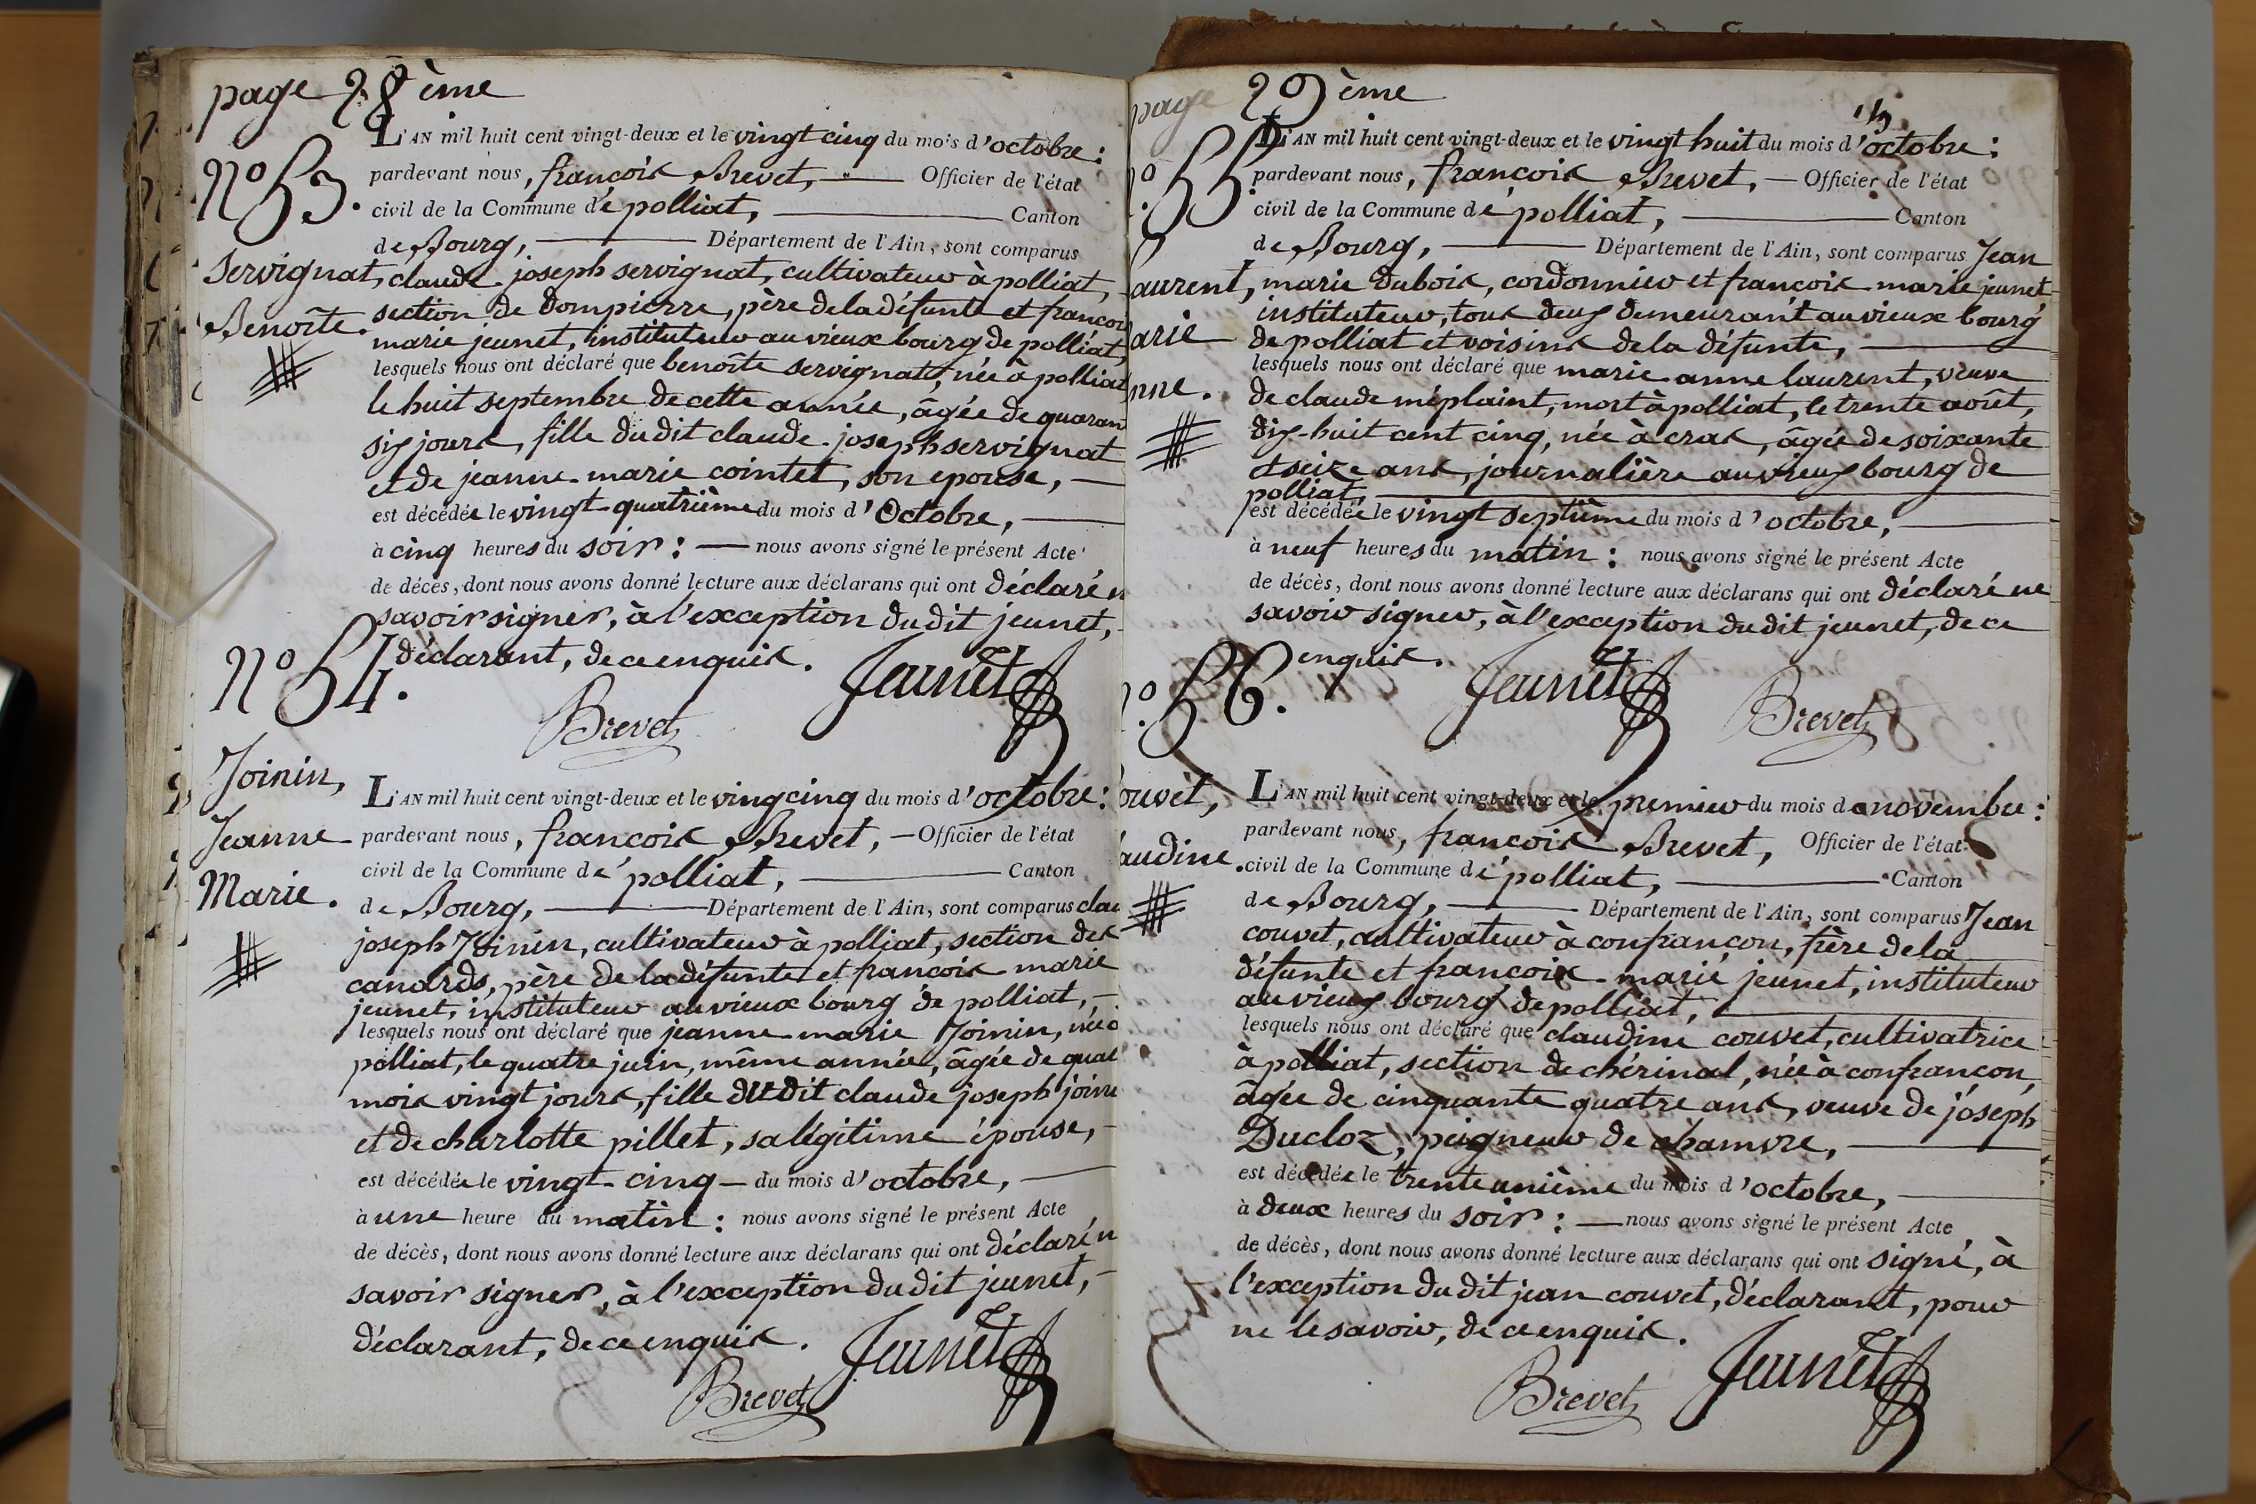 page 28ème
N.o 53.
Servignat,
Benoîte.
L'AN mil huit cent vingt-deux et le vingt cinq du mois d'octobre:
pardevant nous, françois Brevet, Officier de l'état
civil de la Commune de polliat, Canton
de Bourg, Département de l'Ain, sont comparus
claude joseph servignat, cultivateur à polliat,
section de dompierre, père de la défunte et françois
marie jeunet, instituteur au vieux bourg de polliat,
lesquels nous ont déclaré que benoîte servignat, née à polliat
le huit septembre de cette année, âgée de quaran
six jours, fille du dit claude joseph servignat
et de jeanne marie cointet, son epouse,
est décédée le vingt quatrième du mois d'Octobre,
à cinq heures du soir: nous avons signé le présent Acte
de décès, dont nous avons donné lecture aux déclarans qui ont déclaré n
savoir signer, à l'exception du dit jeunet,
déclarant, de ce enquis.
Jeunet
Brevet
N.o 54.
Joinin,
Jeanne
Marie.
L'AN mil huit cent vingt-deux et le vingcinq du mois d'octobre:
pardevant nous, françois Brevet, Officier de l'état
civil de la Commune de polliat, Canton
de Bourg, Département de l'Ain, sont comparus clau
joseph Joinin, cultivateur à polliat, section des
canards, père de la défunte et françois marie
jeunet, instituteur au vieux bourg de polliat,
lesquels nous ont déclaré que jeanne marie Joinin, née à
polliat, le quatre juin, même année, âgée de quat
mois vingt jours, fille du dit claude joseph joinin
et de charlotte pillet, sa légitime épouse,
est décédée le vingt cinq du mois d'octobre,
à une heure du matin: nous avons signé le présent Acte
de décès, dont nous avons donné lecture aux déclarans qui ont déclaré n
savoir signer, à l'exception du dit jeunet,
déclarant, de ce enquis.
Jeunet
Brevet
page 29ème
.o 55.
aurent,
arie
nne.
L'AN mil huit cent vingt-deux et le vingt huit du mois d'octobre:
pardevant nous, françois Brevet, Officier de l'état
civil de la Commune de polliat, Canton
de Bourg, Département de l'Ain, sont comparus Jean
marie dubois, cordonnier et françois marie jeunet
instituteur, tous deux demeurant au vieux bourg
de polliat et voisins de la défunte,
lesquels nous ont déclaré que marie anne laurent, veuve
de claude méplaint, mort à polliat, le trente août,
dix-huit cent cinq, née à cras, âgée de soixante
et seize ans, journalière au vieux bourg de
polliat,
est décédée le vingt septième du mois d'octobre,
à neuf heures du matin: nous avons signé le présent Acte
de décès, dont nous avons donné lecture aux déclarans qui ont déclaré ne
savoir signer, à l'exception du dit jeunet, de ce
enquis.
Jeunet
Brevet
.o 56.
ouvet,
audine.
L'AN mil huit cent vingt-deux et le premier du mois de novembre:
pardevant nous, françois Brevet, Officier de l'état
civil de la Commune de polliat, Canton
de Bourg, Département de l'Ain, sont comparus Jean
couvet, cultivateur à confrançon, frère de la
défunte et françois marie jeunet, instituteur
au vieux bourg de polliat,
lesquels nous ont déclaré que claudine couvet, cultivatrice
à polliat, section de chérinal, née à confrançon,
âgée de cinquante quatre ans, veuve de joseph
Ducloz, peigneur de chanvre,
est décédée le trente unième du mois d'octobre,
à deux heures du soir: nous avons signé le présent Acte
de décès, dont nous avons donné lecture aux déclarans qui ont signé, à
l'exception du dit jean couvet, déclarant, pour
ne le savoir, de ce enquis.
Jeunet
Brevet